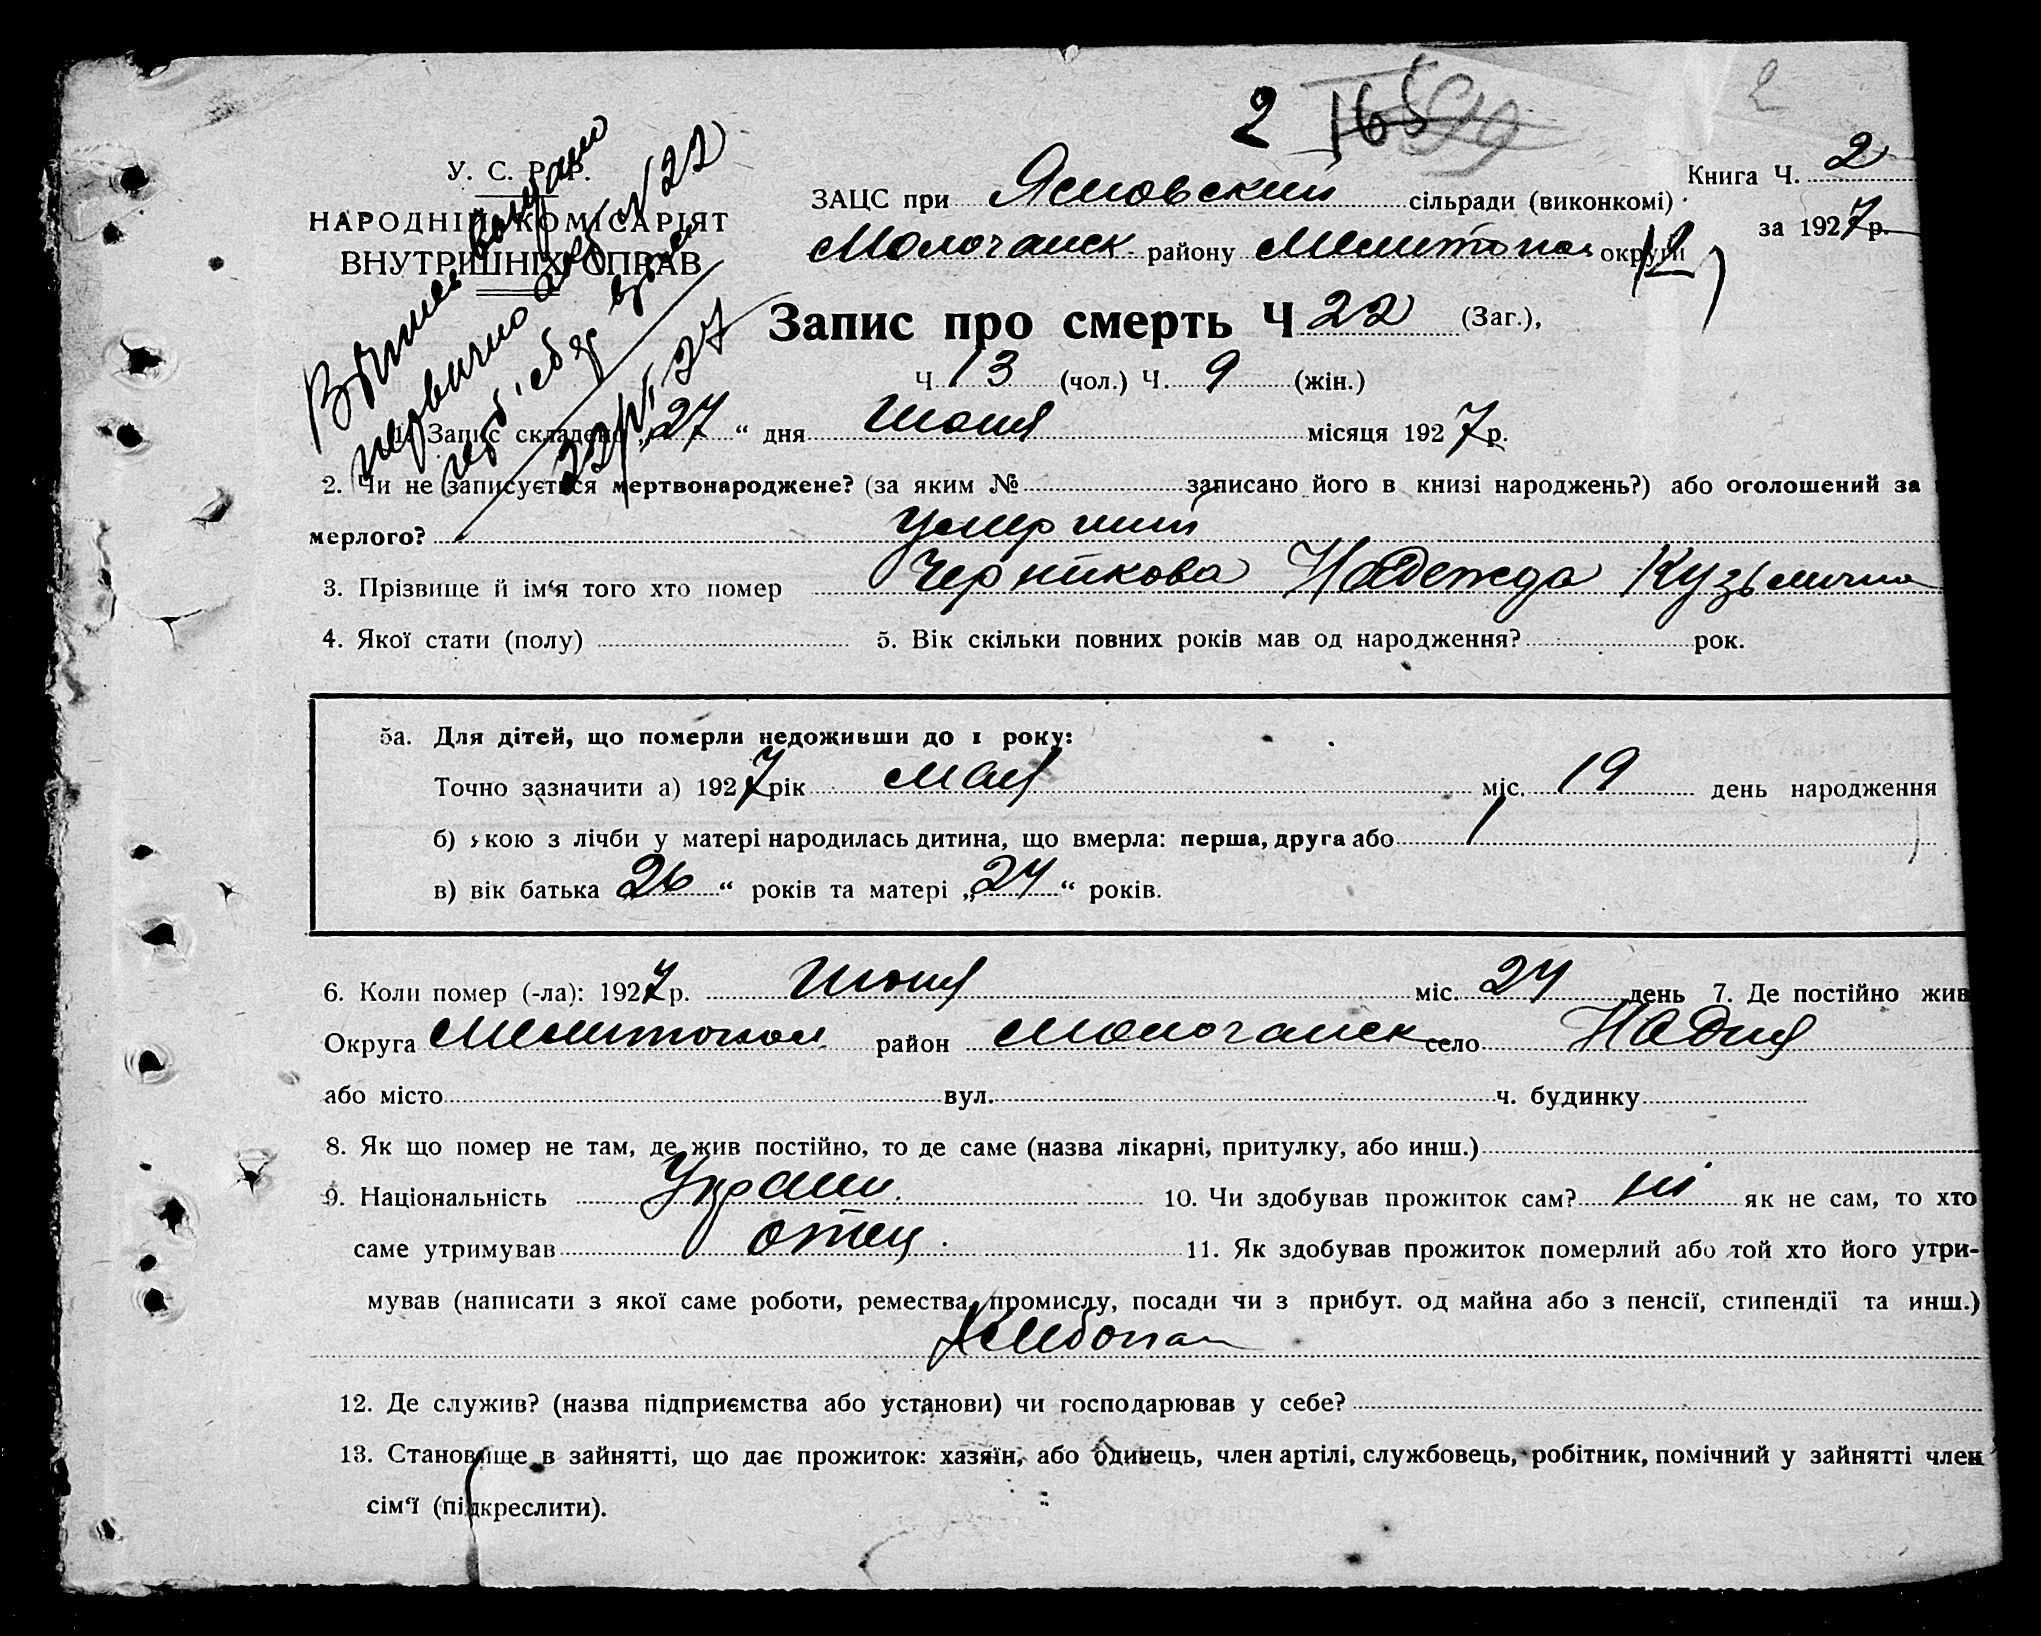 2 165 99 2
У. С. Р. Р.
НАРОДНІЙ КОМІСАРІЯТ
ВНУТРІШНІХ СПРАВ
ЗАЦС при Ясновский сільради (виконкомі)
Книга Ч. 2
за 1927 р.
Молочанск району Мелитопол округи
Запис про смерть Ч 22 (Заг.),
Ч 13 (чол.) Ч. 9 (жін.)
1. Запис складено „27“ дня Июня місяця 1927 р.
2. Чи не записується мертвонароджене? (за яким № записано його в книзі народжень?) або оголошений за
мерлого? Умерший
3. Прізвище й ім‘я того хто помер Черникова Надежда Кузьминична
4. Якої стати (полу) 5. Вік скільки повних років мав од народження? рок.
5а. Для дітей, що померли недоживши до 1 року:
Точно зазначити а) 1927 рік мая міс. 19 день народження
б) якою з лічби у матері народилась дитина, що вмерла: перша, друга або 1
в) вік батька 26 “ років та матері „24“ років.
6. Коли помер (-ла): 1927 р. Июня міс. 24 день 7. Де постійно жив
Округа Мелитопол район Молочанск село Надия
або місто вул. ч. будинку
8. Як що помер не там, де жив постійно, то де саме (назва лікарні, притулку, або инш.)
9. Національність Украин. 10. Чи здобував прожиток сам? ні як не сам, то хто
саме утримував отец. 11. Як здобував прожиток померлий або той хто його утри-
мував (написати з якої саме роботи, ремества, промислу, посади чи з прибут. од майна або з пенсії, стипендії та инш.)
12. Де служив? (назва підприємства або установи) чи господарював у себе?
13. Становище в зайнятті, що дає прожиток: хазяїн, або одинець, член артілі, службовець, робітник, помічний у зайнятті член
сім‘ї (підкреслити).